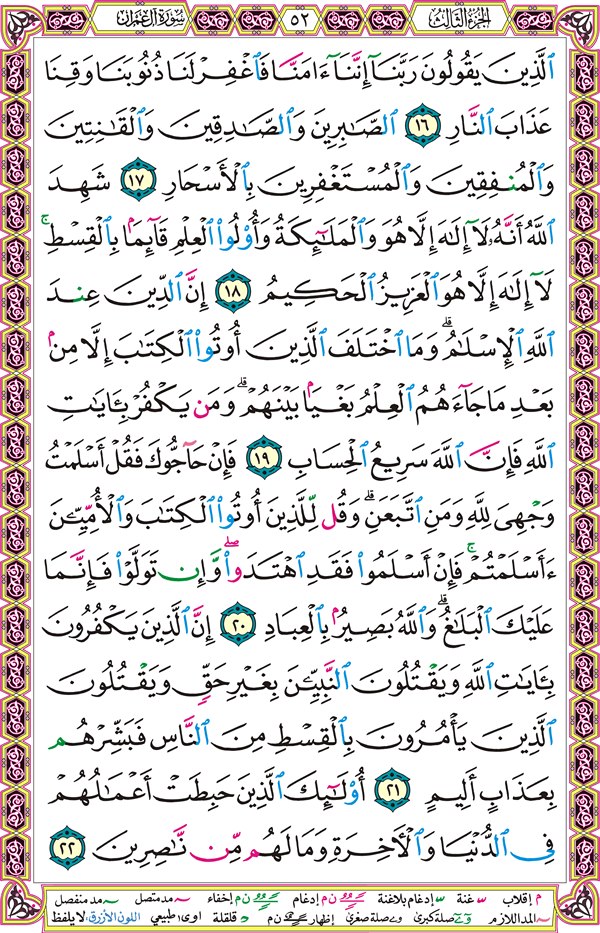 الجزء الثالث ٥٢ سورة آل عمران
ٱلَّذِينَ يَقُولُونَ رَبَّنَآ إِنَّنَآ ءَامَنَّا فَٱغْفِرْ لَنَا ذُنُوبَنَا وَقِنَا
عَذَابَ ٱلنَّارِ ١٦ ٱلصَّٰبِرِينَ وَٱلصَّٰدِقِينَ وَٱلْقَٰنِتِينَ
وَٱلْمُنفِقِينَ وَٱلْمُسْتَغْفِرِينَ بِٱلْأَسْحَارِ ١٧ شَهِدَ
ٱللَّهُ أَنَّهُۥ لَآ إِلَٰهَ إِلَّا هُوَ وَٱلْمَلَٰٓئِكَةُ وَأُو۟لُوا۟ ٱلْعِلْمِ قَآئِمًۢا بِٱلْقِسْطِ ۚ
لَآ إِلَٰهَ إِلَّا هُوَ ٱلْعَزِيزُ ٱلْحَكِيمُ ١٨ إِنَّ ٱلدِّينَ عِندَ
ٱللَّهِ ٱلْإِسْلَٰمُ ۗ وَمَا ٱخْتَلَفَ ٱلَّذِينَ أُوتُوا۟ ٱلْكِتَٰبَ إِلَّا مِنۢ
بَعْدِ مَا جَآءَهُمُ ٱلْعِلْمُ بَغْيًۢا بَيْنَهُمْ ۗ وَمَن يَكْفُرْ بِـَٔايَٰتِ
ٱللَّهِ فَإِنَّ ٱللَّهَ سَرِيعُ ٱلْحِسَابِ ١٩ فَإِنْ حَآجُّوكَ فَقُلْ أَسْلَمْتُ
وَجْهِىَ لِلَّهِ وَمَنِ ٱتَّبَعَنِ ۗ وَقُل لِّلَّذِينَ أُوتُوا۟ ٱلْكِتَٰبَ وَٱلْأُمِّيِّـۧنَ
ءَأَسْلَمْتُمْ ۚ فَإِنْ أَسْلَمُوا۟ فَقَدِ ٱهْتَدَوا۟ ۖ وَّإِن تَوَلَّوْا۟ فَإِنَّمَا
عَلَيْكَ ٱلْبَلَٰغُ ۗ وَٱللَّهُ بَصِيرٌۢ بِٱلْعِبَادِ ٢٠ إِنَّ ٱلَّذِينَ يَكْفُرُونَ
بِـَٔايَٰتِ ٱللَّهِ وَيَقْتُلُونَ ٱلنَّبِيِّـۧنَ بِغَيْرِ حَقٍّ وَيَقْتُلُونَ
ٱلَّذِينَ يَأْمُرُونَ بِٱلْقِسْطِ مِنَ ٱلنَّاسِ فَبَشِّرْهُم
بِعَذَابٍ أَلِيمٍ ٢١ أُو۟لَٰٓئِكَ ٱلَّذِينَ حَبِطَتْ أَعْمَٰلُهُمْ
فِى ٱلدُّنْيَا وَٱلْأَخِرَةِ وَمَا لَهُم مِّن نَّٰصِرِينَ ٢٢
م إقلاب غنة إدغام بلاغنة ن م إدغام ن م إخفاء مد متصل مد منفصل
المد اللازم صلة كبرى صلة صغرى إظهار ن م قلقلة اوى: طبيعي اللون الأزرق: لا يلفظ